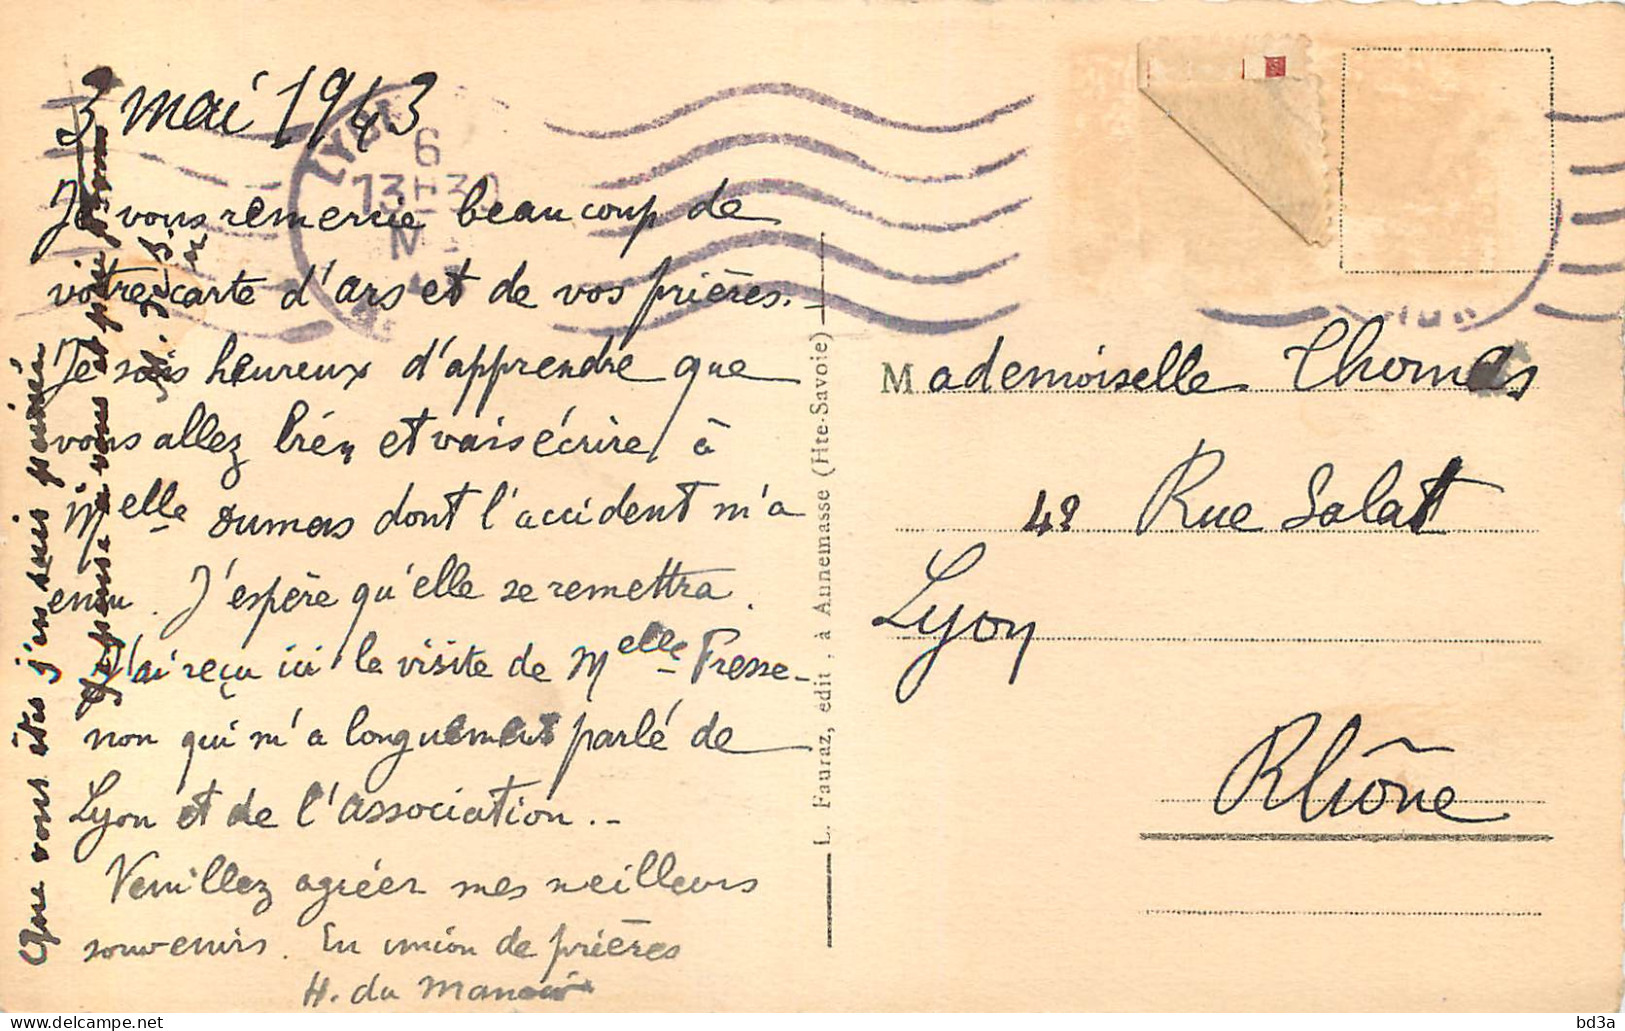 3 mai 1943
Je vous remercie beaucoup de
votre carte d'Ars et de vos prières.
Je suis heureux d'apprendre que
vous allez bien et vais écrire à
Melle Dumas dont l'accident m'a
ému. J'espère qu'elle se remettra.
J'ai reçu ici la visite de Melle Fresse-
non qui m'a longuement parlé de
Lyon et de l'association.-
Veuillez agréer mes meilleurs
souvenirs. En union de prières
H. du Manoir
Que vous êtes j'en suis
pense à vous et prie pour
L. Fauraz, edit., à Annemasse (Hte-Savoie)
LYON
6
13H30
Mademoiselle Thomas
48 Rue Salat
Lyon
Rhône
bd3a